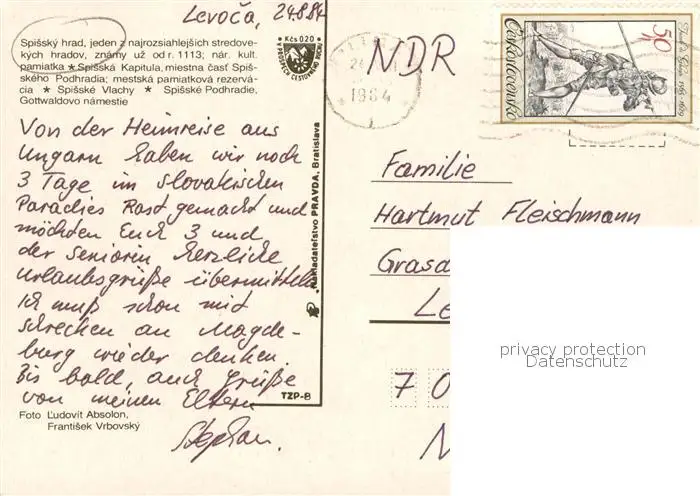 Levoča, 24.8.84
Spišský hrad, jeden z najrozsiahlejších stredove-
kých hradov, známy už od r. 1113; nár. kult.
pamiatka ★ Spišská Kapitula, miestna časť Spiš-
ského Podhradia; mestská pamiatková rezervá-
cia ★ Spišské Vlachy ★ Spišské Podhradie,
Gottwaldovo námestie
Von der Heimreise aus
Ungarn haben wir noch
3 Tage im slovakischen
Paradies Rast gemacht und
möchten Euch 3 und
der Seniorin herzliche
Urlaubsgrüße übermitteln
Ich muß schon mit
schrecken an Magde-
burg wieder denken.
Bis bald, auch Grüße
von meinen Eltern
Stephan.
Foto Ľudovít Absolon,
František Vrbovský
Kčs 0,20
Nakladateľstvo PRAVDA, Bratislava
TZP-8
NDR
1984
50
Československo
Familie
Hartmut Fleischmann
Grasd
Le
7 0
privacy protection
Datenschutz